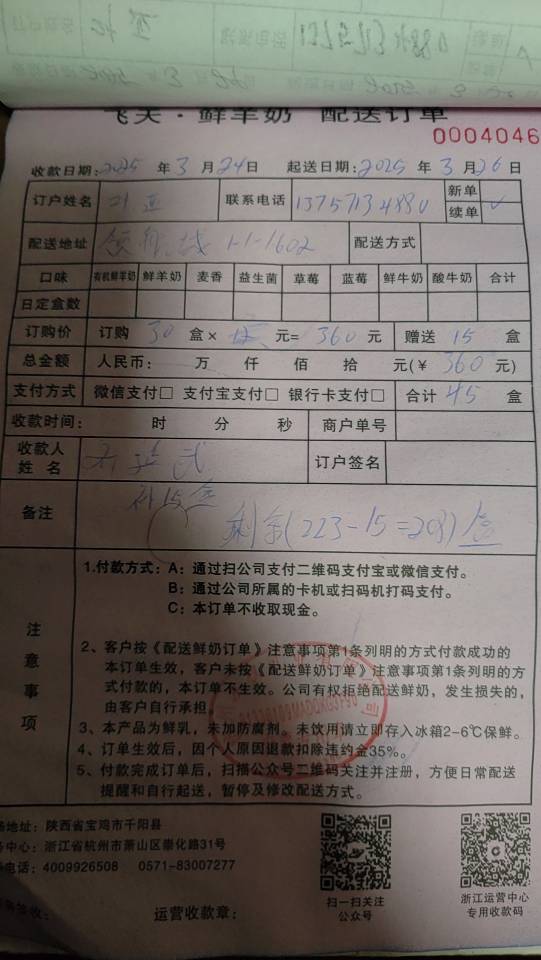 飞天·鲜羊奶 配送订单
0004046
收款日期:2025 年 3 月 24 日 起送日期:2025 年 3 月 26 日
订户姓名 联系电话 13757134880 新单
续单 ✓
配送地址 1-1-1602 配送方式
口味 有机鲜羊奶 鲜羊奶 麦香 益生菌 草莓 蓝莓 鲜牛奶 酸牛奶 合计
日定盒数
订购价 订购 30 盒× 元= 360 元 赠送 15 盒
总金额 人民币: 万 仟 佰 拾 元(¥ 360 元)
支付方式 微信支付□ 支付宝支付□ 银行卡支付□ 合计 45 盒
收款时间: 时 分 秒 商户单号
收款人
姓名 订户签名
备注 补15盒
剩余(223-15=208)盒
注意事项
1.付款方式:A:通过扫公司支付二维码支付宝或微信支付。
B:通过公司所属的卡机或扫码机打码支付。
C:本订单不收取现金。
2、客户按《配送鲜奶订单》注意事项第1条列明的方式付款成功的
本订单生效,客户未按《配送鲜奶订单》注意事项第1条列明的方
式付款的,本订单不生效。公司有权拒绝配送鲜奶,发生损失的,
由客户自行承担。
3、本产品为鲜乳,未加防腐剂。未饮用请立即存入冰箱2-6℃保鲜。
4、订单生效后,因个人原因退款扣除违约金35%。
5、付款完成订单后,扫描公众号二维码关注并注册,方便日常配送
提醒和自行起送,暂停及修改配送方式。
地址:陕西省宝鸡市千阳县
中心:浙江省杭州市萧山区崇化路31号
电话:4009926508 0571-83007277
签收: 运营收款章:
扫一扫关注
公众号
浙江运营中心
专用收款码